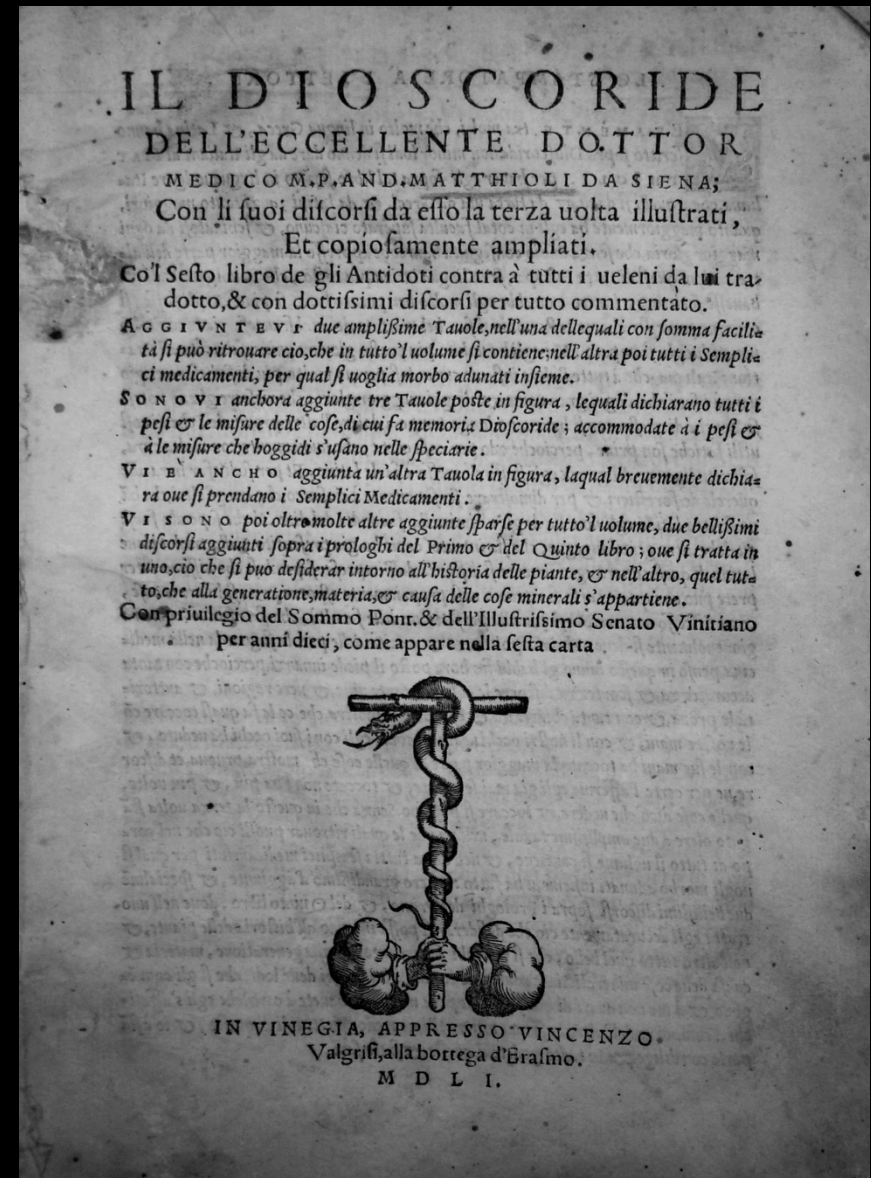 IL DIOSCORIDE
DELL'ECCELLENTE DO.TTOR
MEDICO M.P.AND.MATTHIOLI DA SIENA;
Con li ſuoi diſcorſi da eſſo la terza uolta illuſtrati,
Et copioſamente ampliati.
Co'l Seſto libro de gli Antidoti contra à tutti i ueleni da lui tra-
dotto,& con dottiſsimi diſcorſi per tutto commentato.
AGGIVNTEVI due ampliſſime Tauole,nell'una dellequali con ſomma facili=
tà ſi può ritrouare cio,che in tutto'l uolume ſi contiene;nell'altra poi tutti i Sempli=
ci medicamenti, per qual ſi uoglia morbo adunati inſieme.
SONOVI anchora aggiunte tre Tauole poſte in figura, lequali dichiarano tutti i
peſi & le miſure delle coſe,di cui fa memoria Dioſcoride; accommodate à i peſi &
à le miſure che hoggidi s'uſano nelle ſpeciarie.
VI E' ANCHO aggiunta un'altra Tauola in figura, laqual breuemente dichia=
ra oue ſi prendano i Semplici Medicamenti.
VI SONO poi oltre molte altre aggiunte ſparſe per tutto'l uolume, due belliſſimi
diſcorſi aggiunti ſopra i prologhi del Primo & del Quinto libro; oue ſi tratta in
uno,cio che ſi puo deſiderar intorno all'hiſtoria delle piante, & nell'altro, quel tut=
to,che alla generatione,materia,& cauſa delle coſe minerali s'appartiene.
Con priuilegio del Sommo Pont.& dell'Illuſtriſsimo Senato Vinitiano
per anni dieci, come appare nella ſeſta carta
IN VINEGIA, APPRESSO VINCENZO
Valgriſi,alla bottega d'Eraſmo.
MDLI.